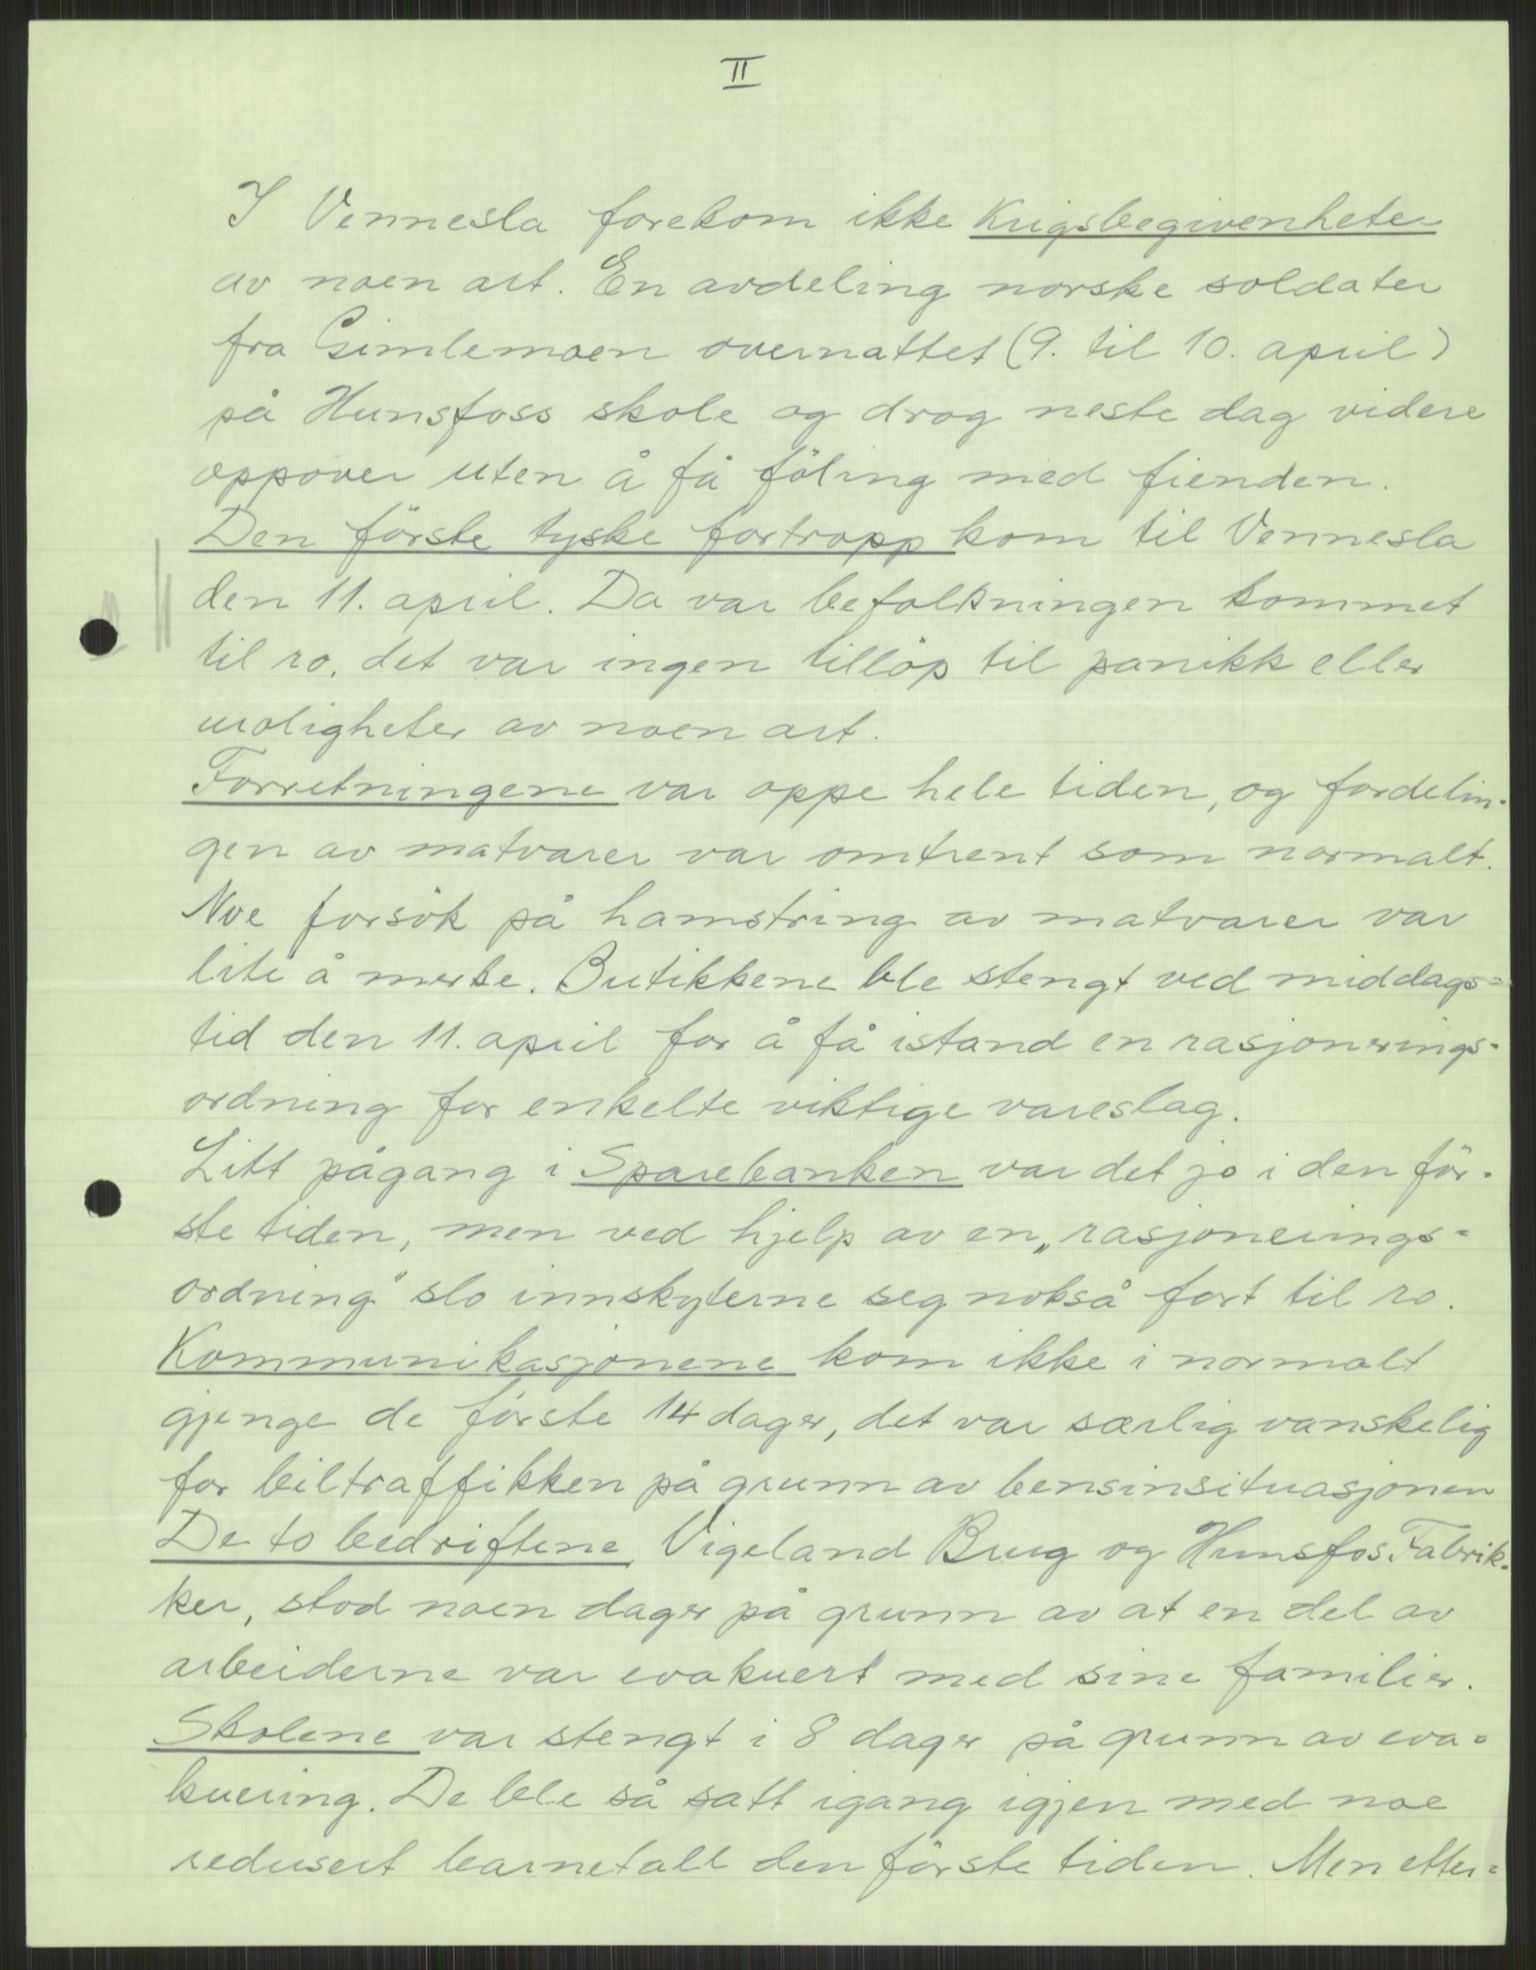 II
I Vennesla forekom ikke Krigsbegivenheter
av noen art. En avdeling norske soldater
fra Gimlemoen overnattet (9. til 10. april)
på Hunsfoss skole og drog neste dag videre
oppover uten å få föling med fienden.
Den förste tyske fortropp kom til Vennesla
den 11. april. Da var befolkningen kommet
til ro, det var ingen tillöp til panikk eller
uroligheter av noen art.
Forretningene var oppe hele tiden, og fordelin-
gen av matvarer var omtrent som normalt.
Noe forsök på hamstring av matvarer var
lite å merke. Butikkene ble stengt ved middags=
tid den 11. april for å få istand en rasjonerings-
ordning for enkelte viktige vareslag.
Litt pågang i Sparebanken var det jo i den för-
ste tiden, men ved hjelp av en „rasjonerings=
ordning" slo innskyterne seg nokså fort til ro.
Kommunikasjonene kom ikke i normalt
gjenge de förste 14 dager, det var særlig vanskelig
for biltraffikken på grunn av bensinsituasjonen
De to bedriftene, Vigeland Brug og Hunsfos Fabrik-
ker, stod noen dager på grunn av at en del av
arbeiderne var evakuert med sine familier.
Skolene var stengt i 8 dager på grunn av eva=
kuering. De ble så satt igang igjen med noe
redusert barnetall den förste tiden. Men etter=